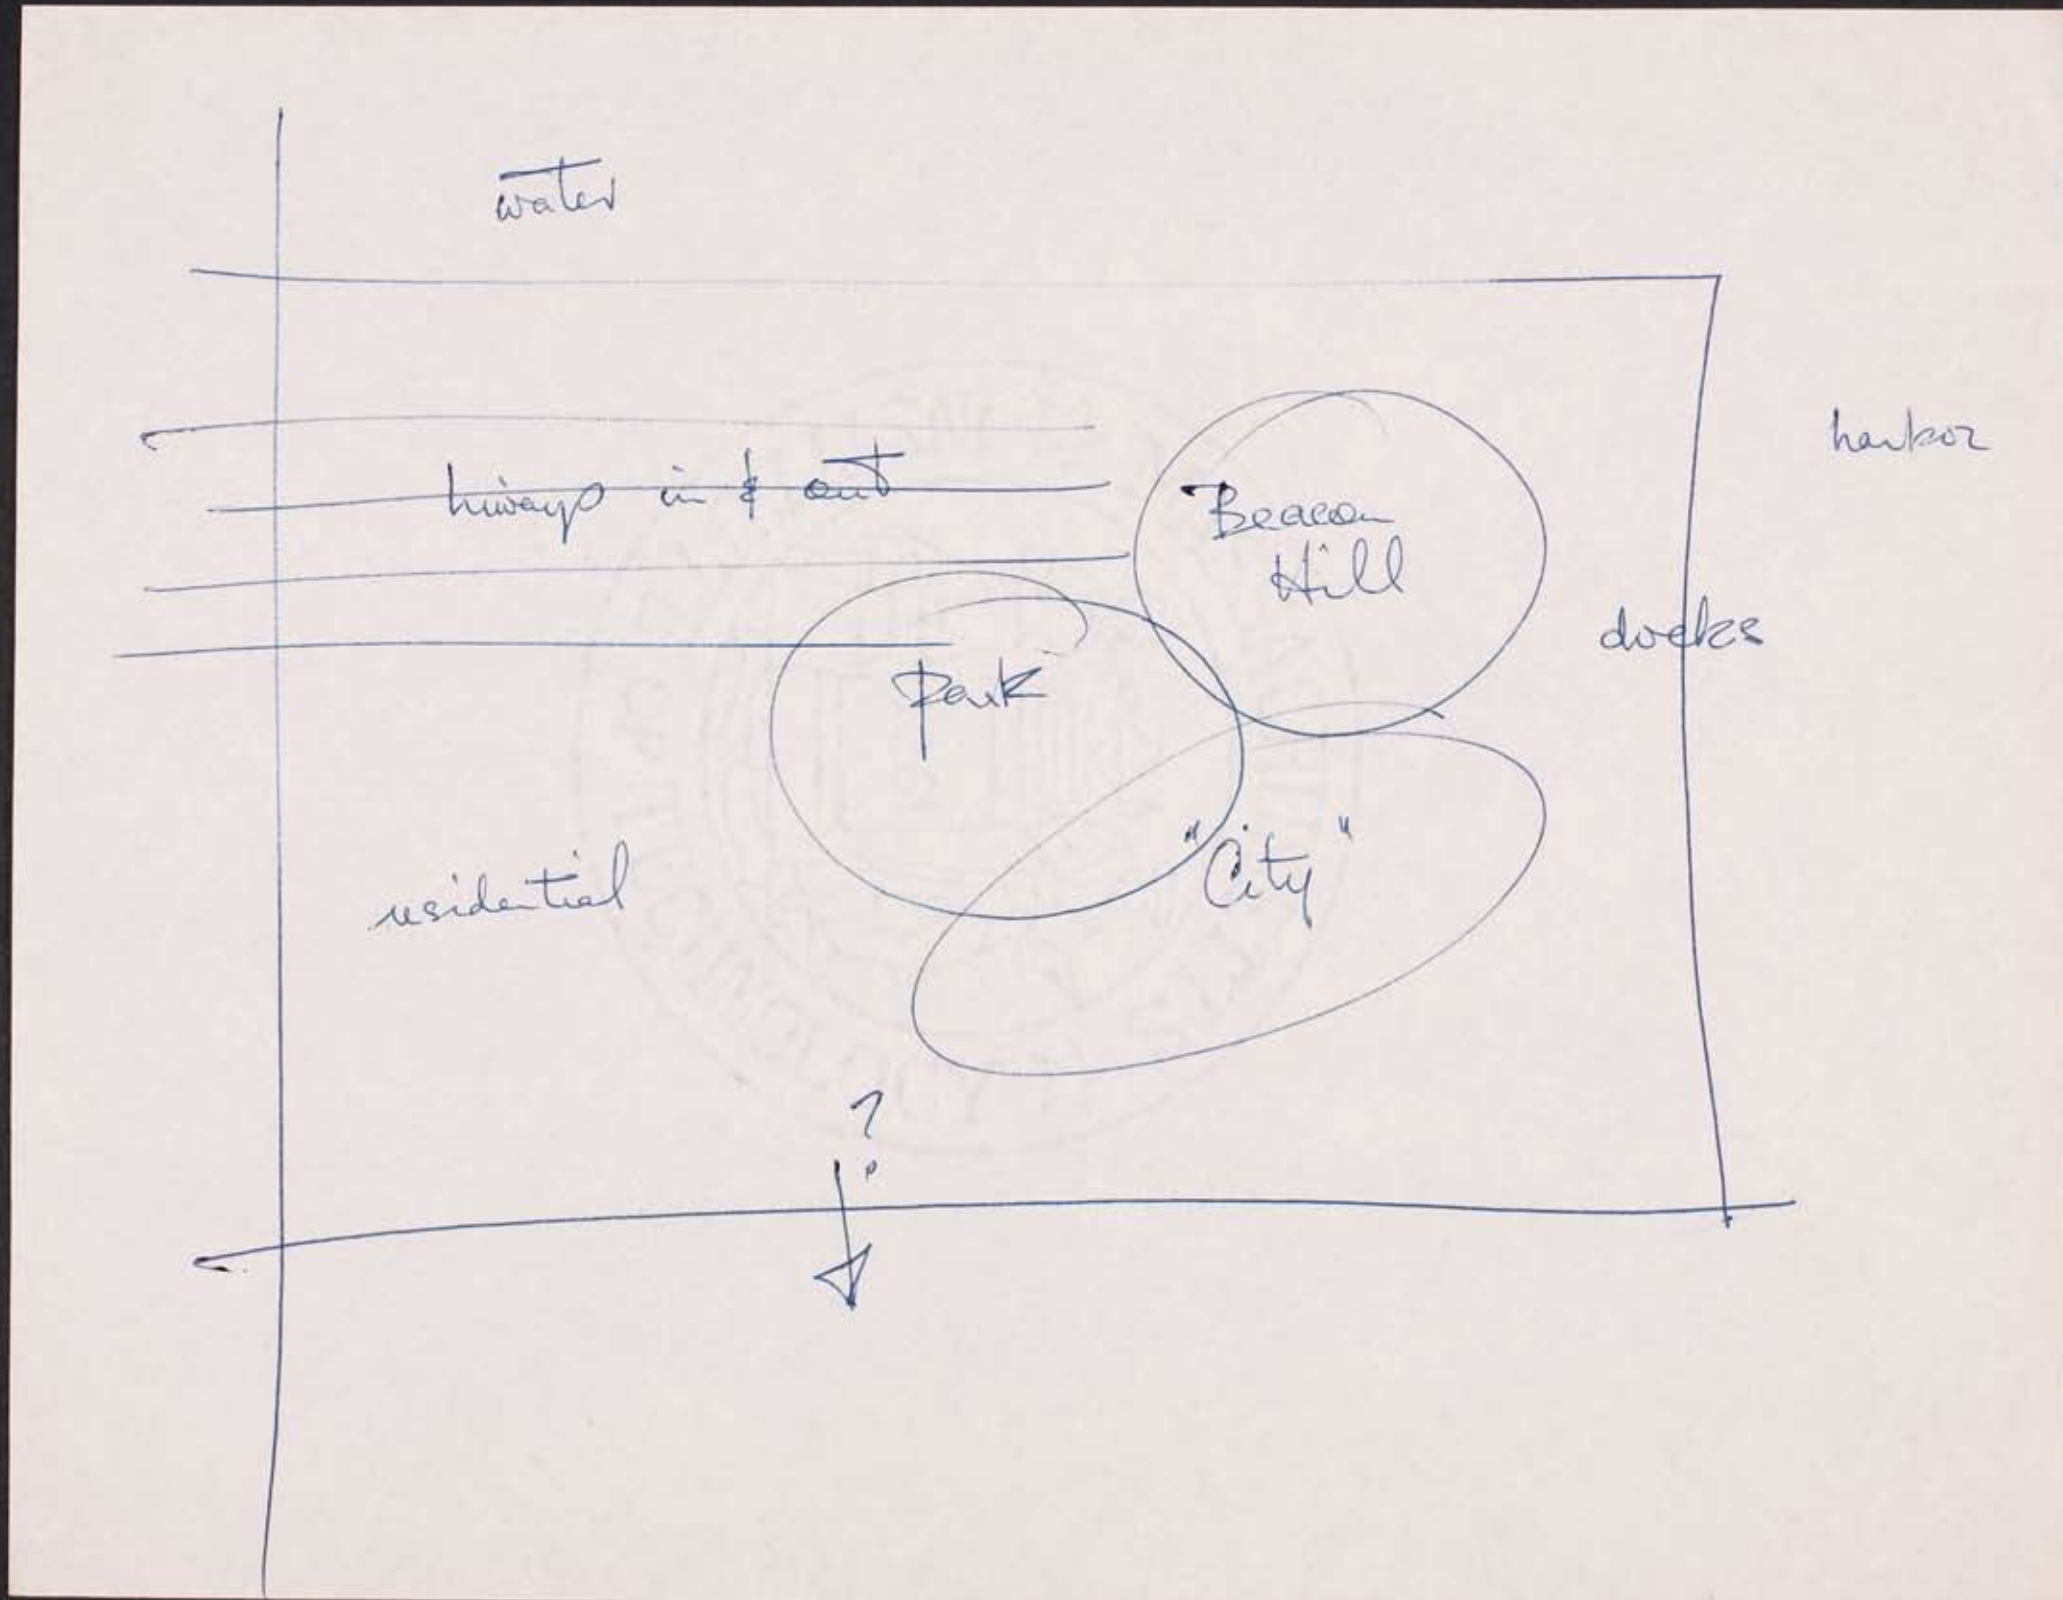 water
harbor
hiways in & out
Beacon
Hill
docks
Park
"City"
residential
?